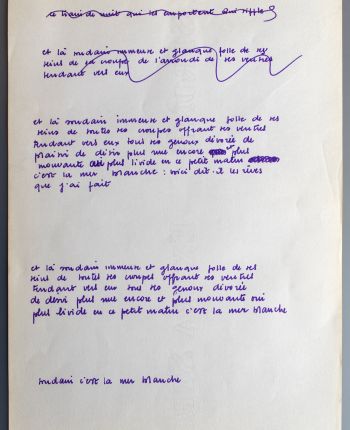 le train de nuit qui les emportent qui siffle
et là soudain immense et glauque folle de ses
seins de sa croupe de l'arrondi de ses ventres
tendant vers eux
et là soudain immense et glauque folle de ses
seins de toutes ses croupes offrant ses ventres
tendant vers eux tous ses genoux dévorée de
plaisir de désir plus nue encore et plus
mouvante plus livide en ce petit matin
c'est la mer blanche : voici dit-il les rêves
que j'ai fait
et là soudain immense et glauque folle de ses
seins de toutes ses croupes offrant ses ventres
tendant vers eux tous ses genoux dévorée
de désir plus nue encore et plus mouvante oui
plus livide en ce petit matin c'est la mer blanche
soudain c'est la mer blanche